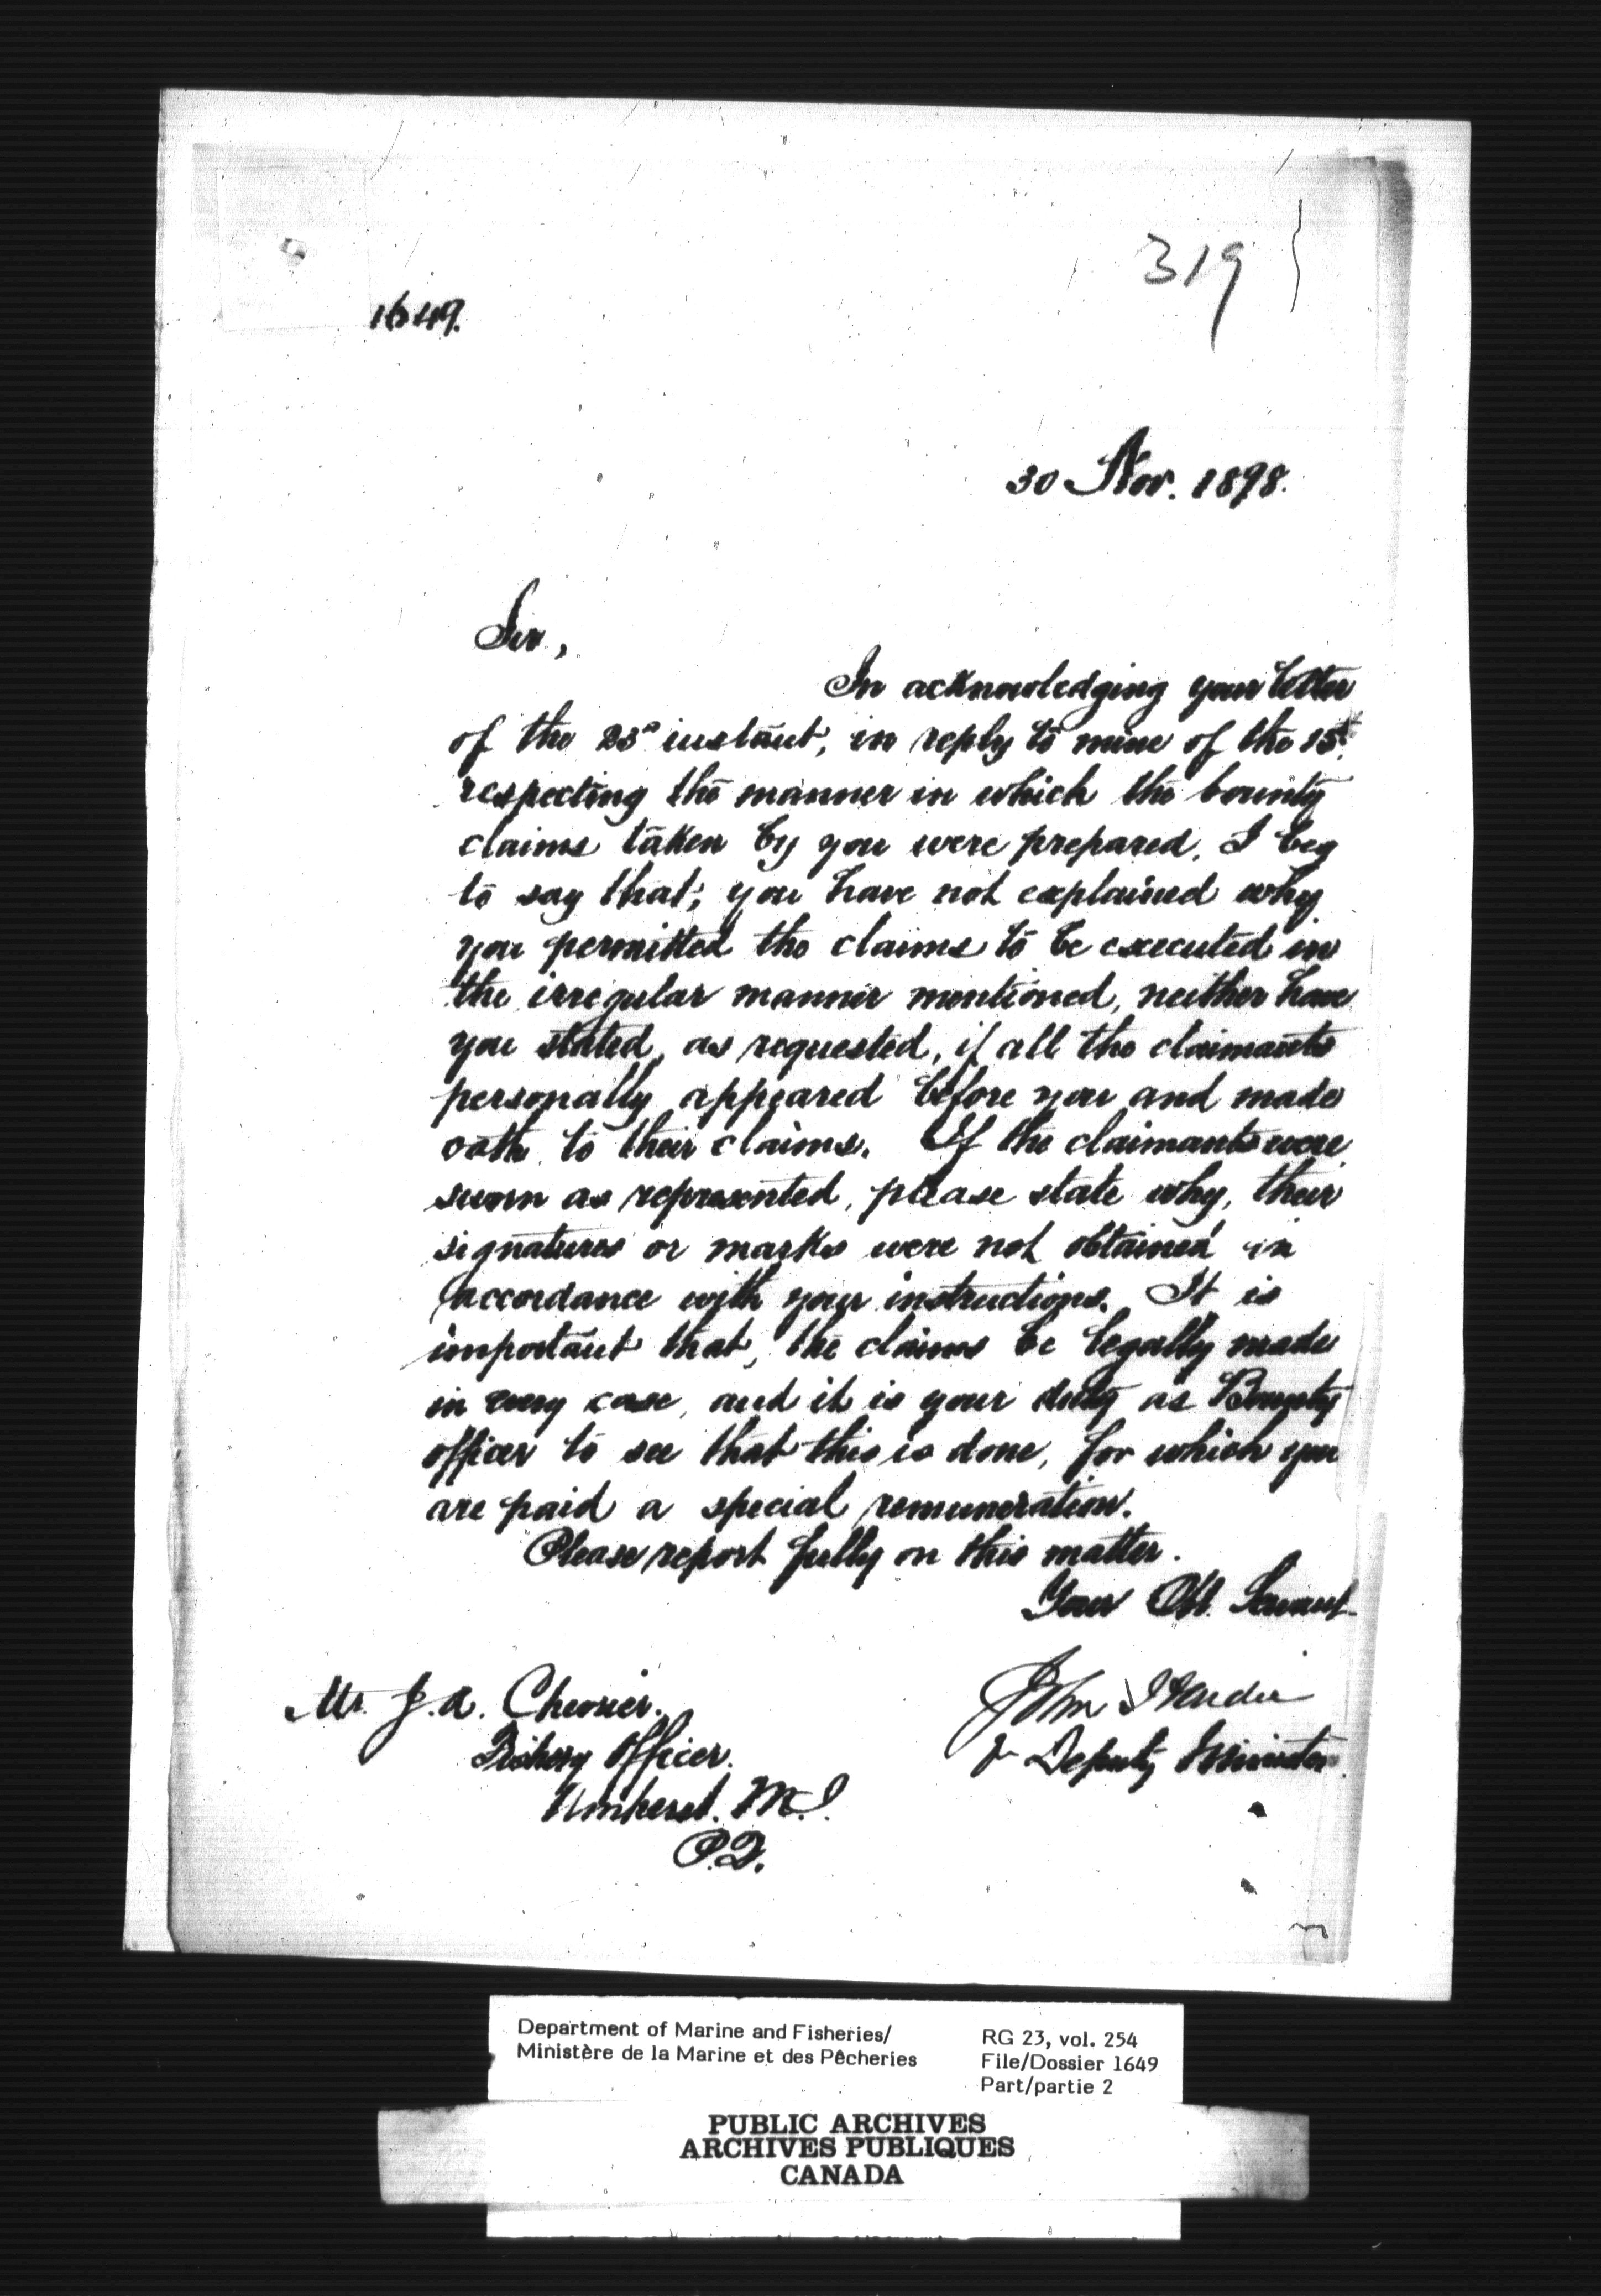 319
1649.
30 Nov. 1898.
Sir,
In acknowledging your letter
of the 23d instant, in reply to mine of the 15t.
respecting the manner in which the bounty
claims taken by you were prepared, I beg
to say that, you have not explained why
you permitted the claims to be executed in
the irregular manner mentioned, neither have
you stated, as requested, if all the claimants
personally appeared before you and made
oath to their claims. If the claimants were
sworn as represented, please state why, their
signatures or marks were not obtained in
accordance with your instructions. It is
important that, the claims be legally made
in every case, and it is your duty as Bounty
officer to see that this is done, for which you
are paid a special remuneration.
Please report fully on this matter.
Your Obt. Servant
John Hardie
Deputy Minister.
Mr. J. A. Chevrier.
Fishery Officer.
Amherst. M.I.
P.Q.
Department of Marine and Fisheries/
Ministère de la Marine et des Pêcheries
RG 23, vol. 254
File/Dossier 1649
Part/partie 2
PUBLIC ARCHIVES
ARCHIVES PUBLIQUES
CANADA